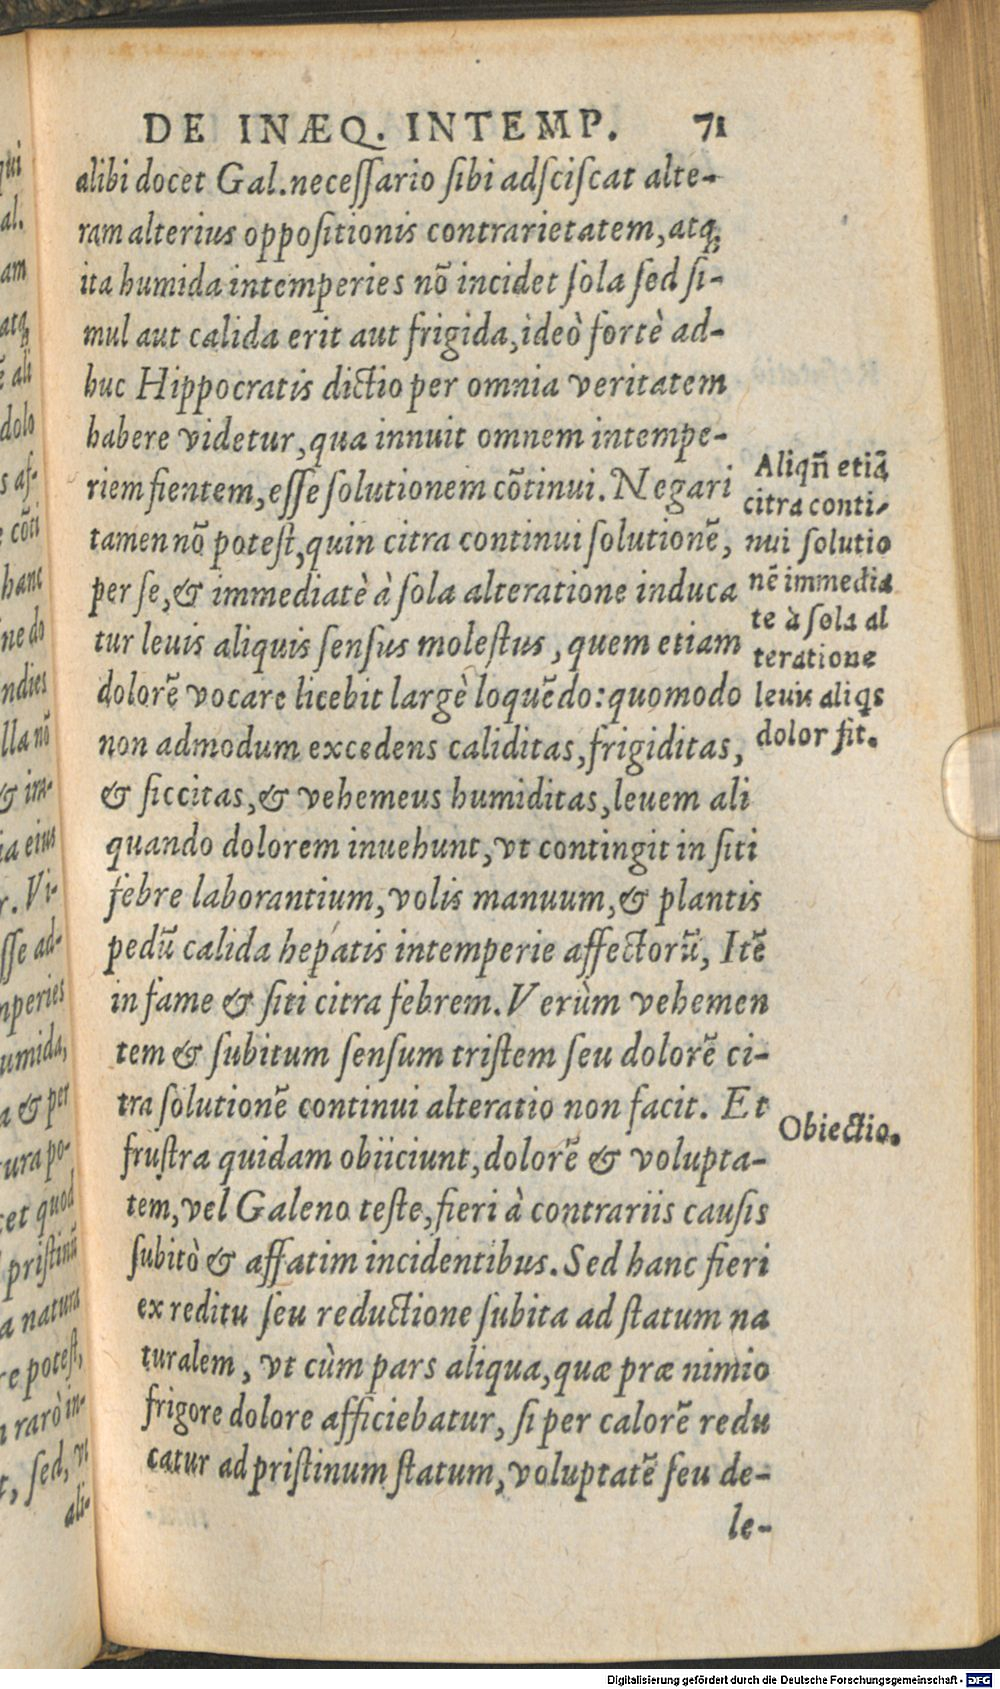 DE INÆQ. INTEMP. 71
alibi docet Gal. necessario sibi adsciscat alte-
ram alterius oppositionis contrarietatem, atq;
ita humida intemperies nõ incidet sola sed si-
mul aut calida erit aut frigida, ideò fortè ad-
huc Hippocratis dictio per omnia veritatem
habere videtur, qua innuit omnem intempe-
riem fientem, esse solutionem cõtinui. Negari
tamen nõ potest, quin citra continui solutionẽ,
per se, & immediatè à sola alteratione induca
tur leuis aliquis sensus molestus, quem etiam
dolorẽ vocare licebit largè loquẽdo: quomodo
non admodum excedens caliditas, frigiditas,
& siccitas, & vehemeus humiditas, leuem ali
quando dolorem inuehunt, vt contingit in siti
febre laborantium, volis manuum, & plantis
pedũ calida hepatis intemperie affectorũ, Itẽ
in fame & siti citra febrem. Verùm vehemen
tem & subitum sensum tristem seu dolorẽ ci-
tra solutionẽ continui alteratio non facit. Et
frustra quidam obiiciunt, dolorẽ & volupta-
tem, vel Galeno teste, fieri à contrariis causis
subitò & affatim incidentibus. Sed hanc fieri
ex reditu seu reductione subita ad statum na
turalem, vt cùm pars aliqua, quæ præ nimio
frigore dolore afficiebatur, si per calorẽ redu
catur ad pristinum statum, voluptatẽ seu de-
le-
Aliqñ etiã
citra conti-
nui solutio
nẽ immedia
te à sola al
teratione
leuis aliqs
dolor fit.
Obiectio.
qui
al.
am
atq;
ẽ ali
dolo
s af-
e cõti
hanc
ne do
ndies
lla nõ
& im-
ia eius
r. Vi-
sse ad-
mperies
umida,
a & per
tura po-
cet quod
pristinũ
a natura
re potest,
n rarò in-
t, sed, vt
ali-
Digitalisierung gefördert durch die Deutsche Forschungsgemeinschaft - DFG